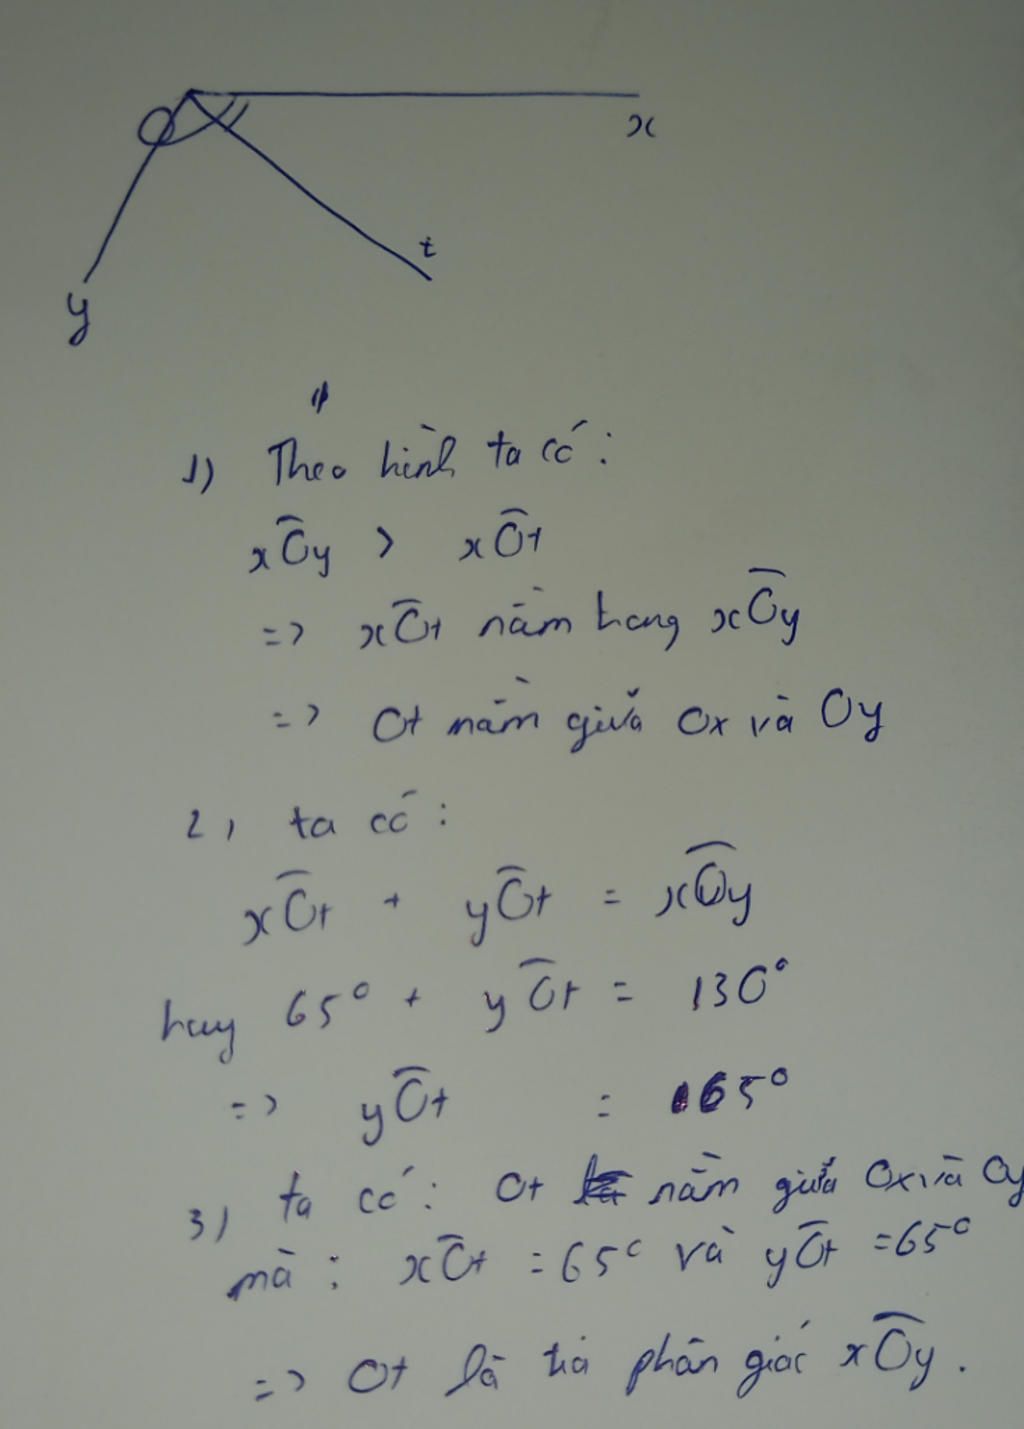 O
x
t
y
1) Theo hình ta có:
xÔy > xÔt
=> xÔt nằm trong xÔy
=> Ot nằm giữa Ox và Oy
2, ta có:
xÔt + yÔt = xÔy
hay 65° + yÔt = 130°
=> yÔt = 65°
3) ta có: Ot nằm giữa Ox và Oy
mà: xÔt = 65° và yÔt = 65°
=> Ot là tia phân giác xÔy.